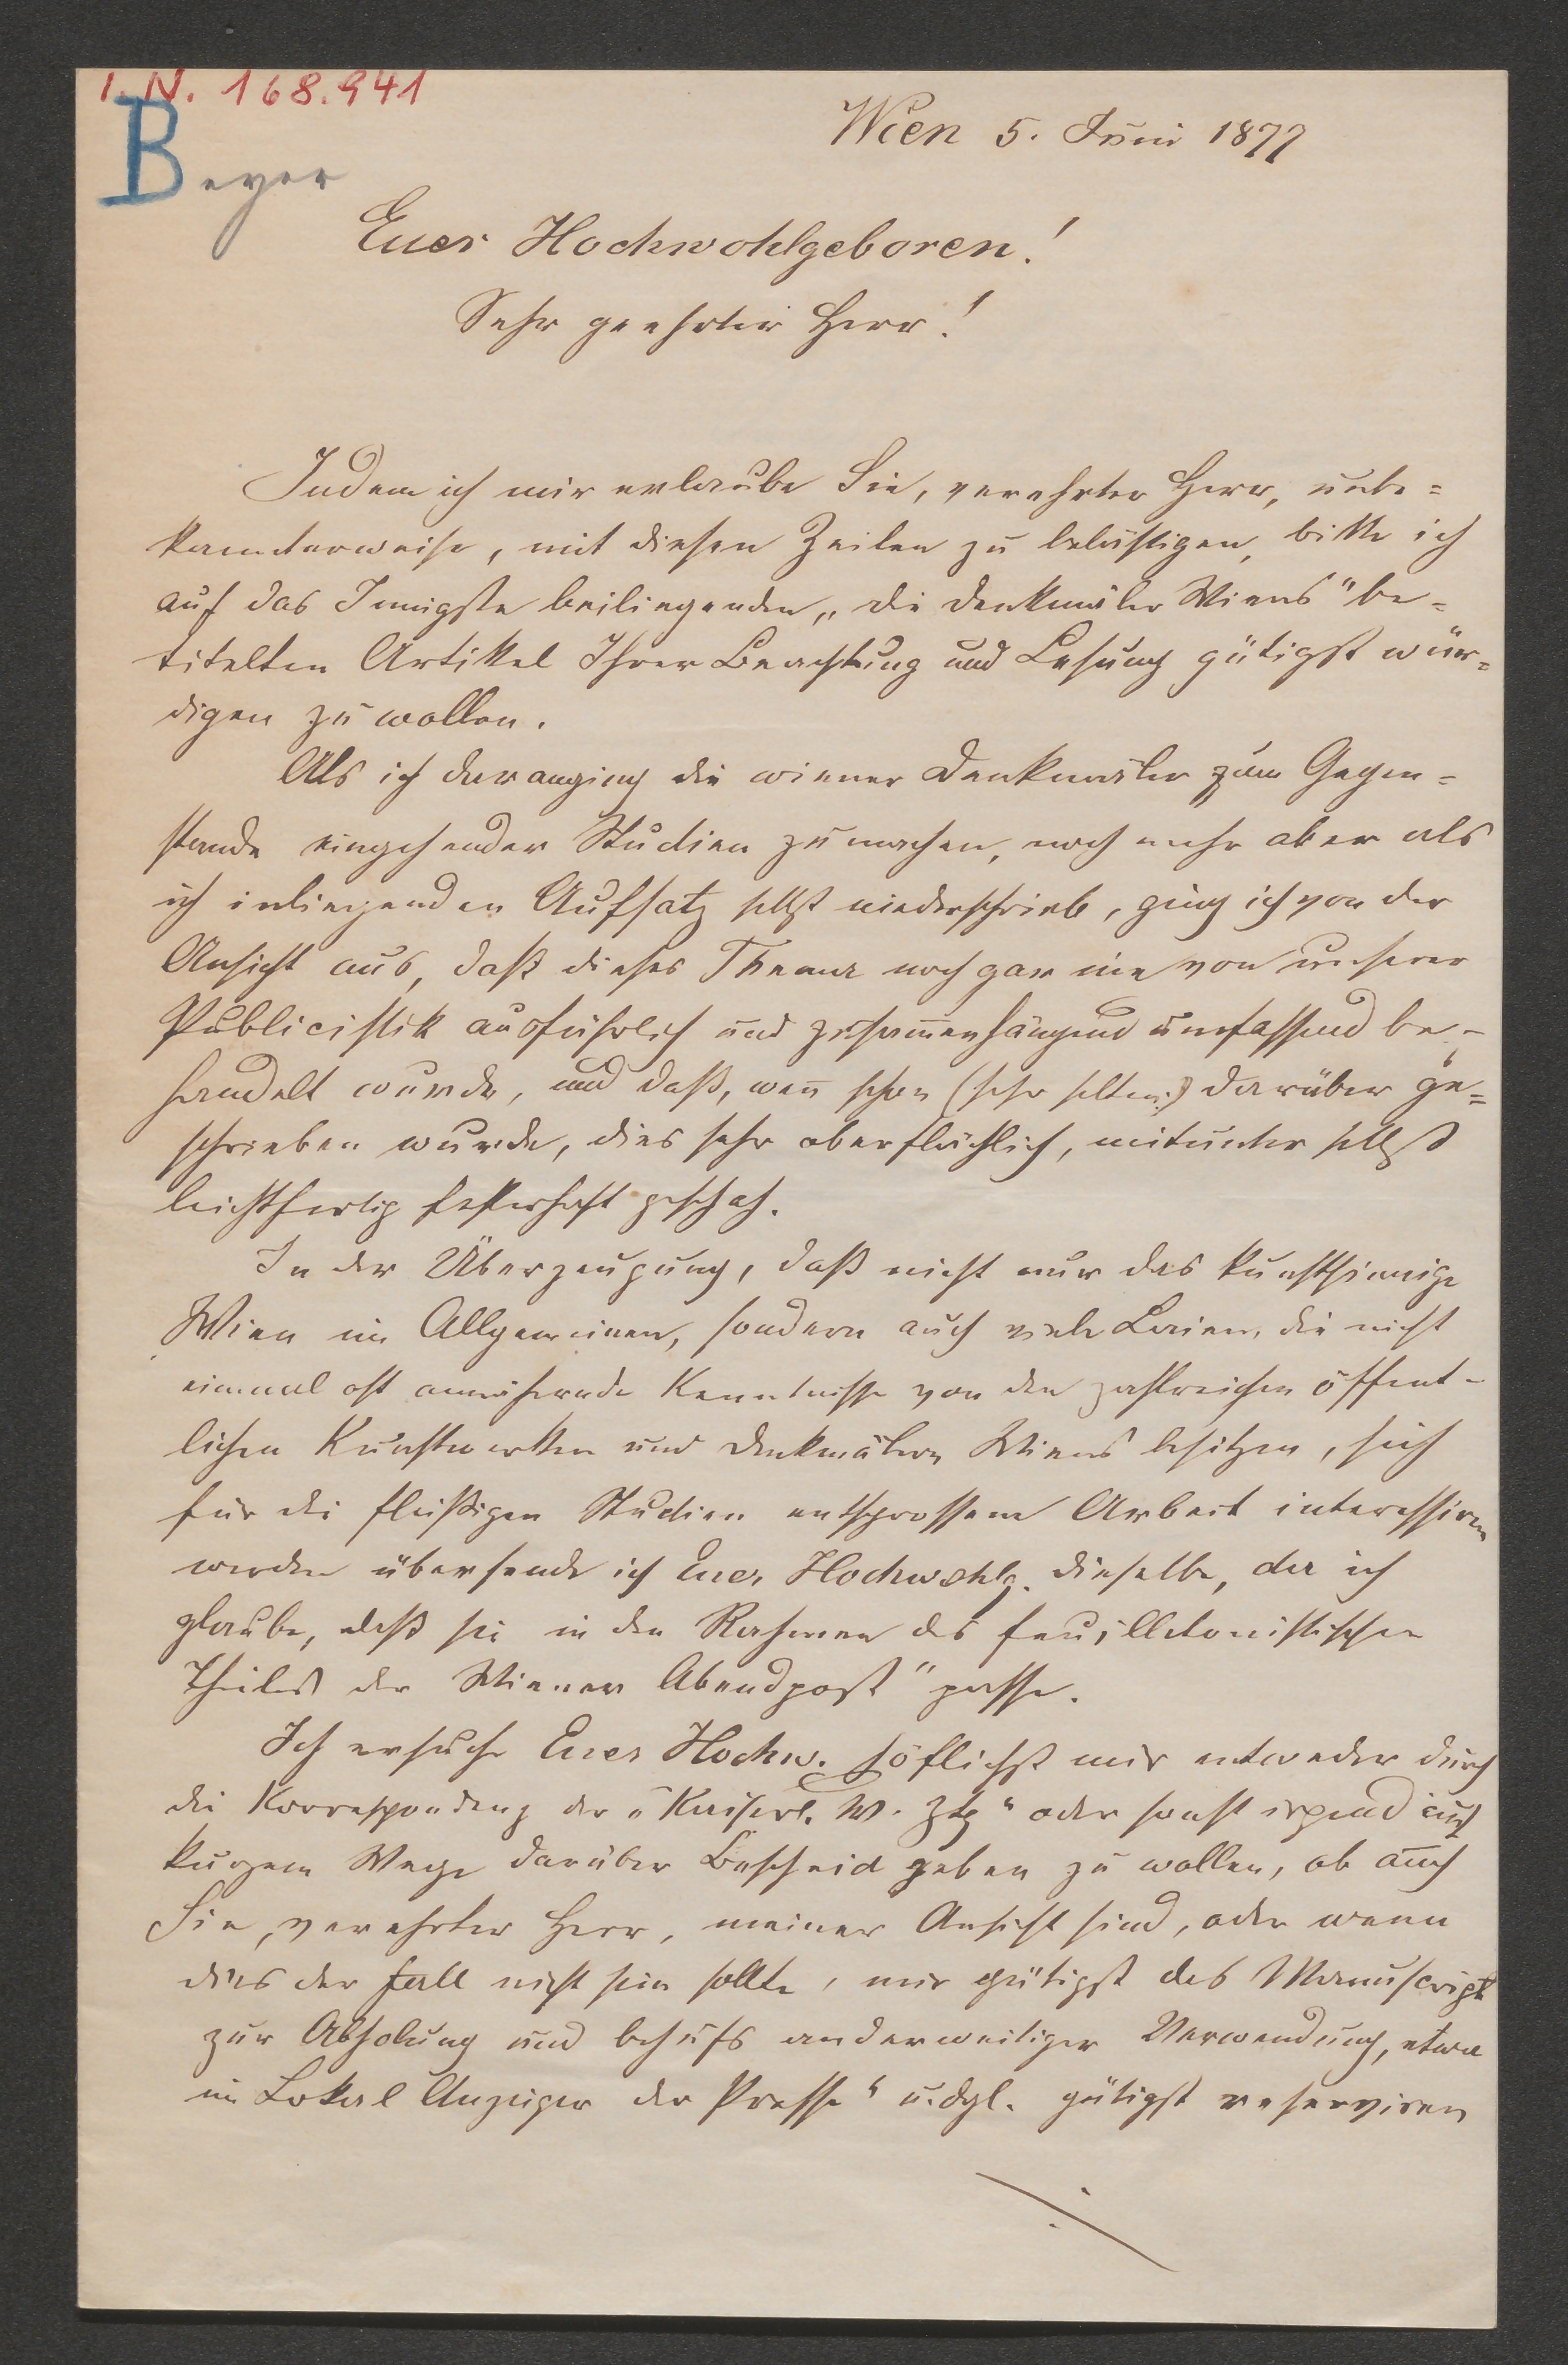 I. N. 168.941
Beyer
Wien 5. Juni 1877
Euer Hochwohlgeboren!
Sehr geehrter Herr!
Indem ich mir erlaube Sie, verehrter Herr, unbe=
kannterweise, mit diesen Zeilen zu belästigen, bitte ich
auf das Innigste beiliegenden „die Denkmäler Wiens" be=
titelten Artikel Ihrer Beachtung und Lesung gütigst wür=
digen zu wollen.
Als ich daranging die wiener Denkmäler zum Gegen=
stande eingehender Studien zu machen, noch mehr aber als
ich inliegenden Aufsatz selbst niederschrieb, ging ich von der
Ansicht aus, daß dieses Thema noch gar nie von unserer
Publicistik ausführlich und zusam̄enhängend umfassend be-
handelt wurde, und daß, wen̄ schon (sehr selten:) darüber ge=
schrieben wurde, dies sehr oberflächlich, mitunter selbst
leichtfertig fehlerhaft geschah.
In der Überzeugung, daß nicht nur das kunstsinnige
Wien im Allgemeinen, sondern auch viele Laien, die nicht
einmal oft annähernde Kenntnisse von den zahlreichen öffent-
lichen Kunstwerken und Denkmälern Wiens besitzen, sich
für die fleißigen Studien entsprossene Arbeit interessiren
werden übersende ich Euer Hochwohlg. dieselbe, da ich
glaube, daß sie in den Rahmen des feuilletonistischen
Theiles der Wiener Abendpost" passe.
Ich ersuche Euer Hochw. höflichst mir entweder durch
die Korrespondenz der „Kaiserl. W. Ztg" oder sonst irgend auf
kurzem Wege darüber Bescheid geben zu wollen, ob auch
Sie, verehrter Herr, meiner Ansicht sind, oder wenn
dies der Fall nicht sein sollte, mir gütigst das Manuscript
zur Abholung und behufs anderweitiger Verwendung, etwa
im Lokal Anzeiger der Presse" u. dgl. gütigst reserviren